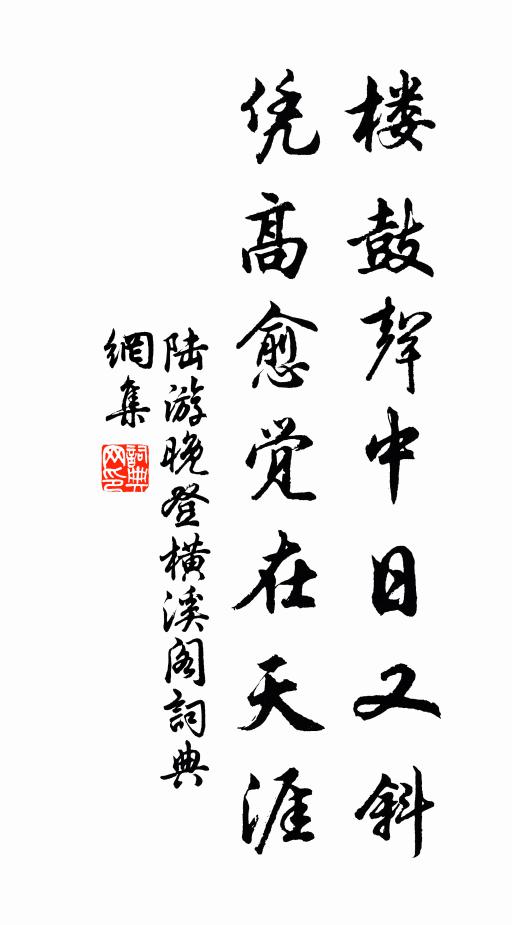 楼鼓聲中日又斜
凭高愈觉在天涯
陆游晚登横溪阁詞典
網集
詞典
网印